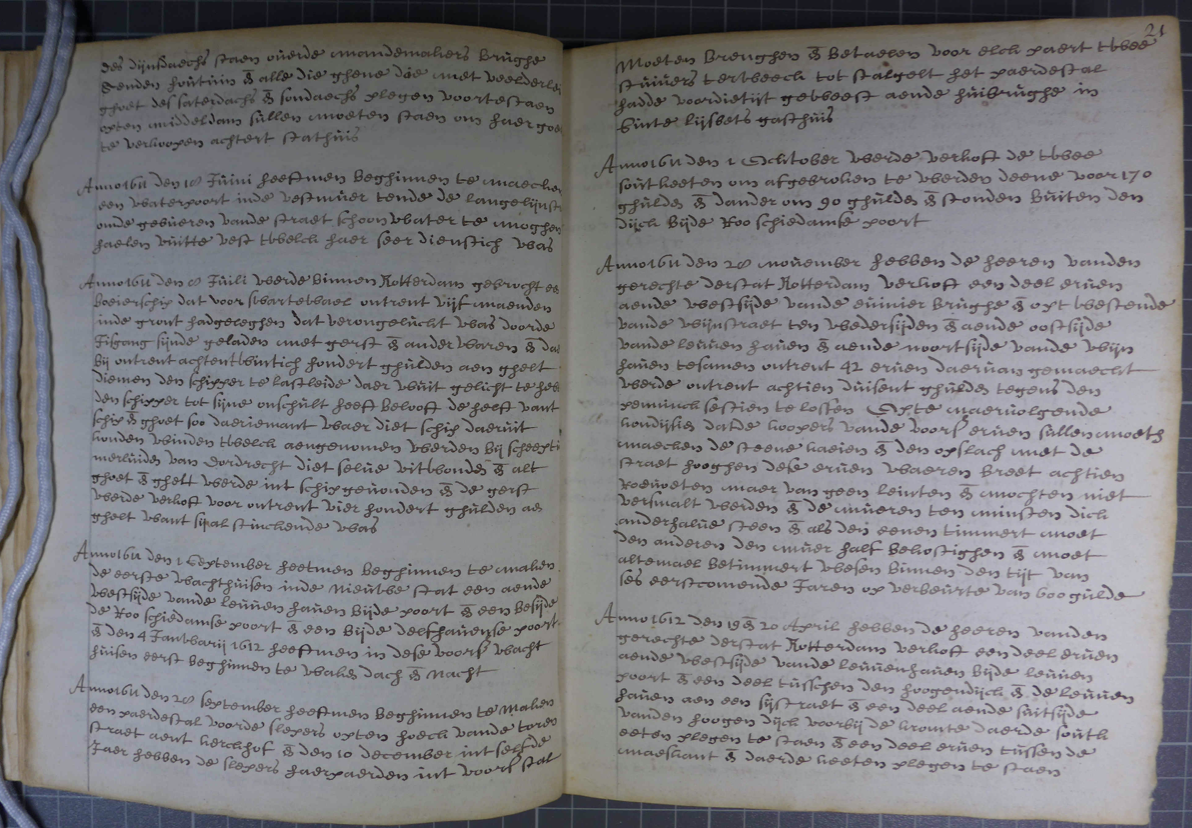 des dijnsdaechs staen ouerde mandemakers brughe
ende alle die ghene die met veelderley
ghoet des saterdachs ende sondaechs plegen voortestaen
opten middeldam sullen moeten staen om haer goe
te vercoopen achtert stathuis
Anno 1611 den 10 Junij heeftmen beghinnen te maecken
een waterpoort inde vestmuer tende de langelijnst
omde gebueren vande straet schoon water te moghen
haelen vuitte vest twelck haer seer dienstich was
Anno 1611 den 8 Julij werde binnen Rotterdam gebrocht een
boeierschip dat voor swartewael ontrent vijf maenden
inde gront hadgeleghen dat verongelucht was doorde
IJsgang sijnde geladen met gerst ende ander waren ende dat
bij ontrent achtentwintich hondert ghulden aen ghelt
diemen den schipper te lastleide daer wuit gelicht te heb
den schipper tot sijne onschult heeft belooft de helft vant
schip ende ghoet soo daeriemant waer diet schip daeruit
konden winden twelck aengenomen werden bij scheepti
merluiden van dordrecht diet selue uitwonden ende alt
ghoet ende ghelt werde int schip geuonden ende de gerst
werde verkoft voor ontrent vier hondert ghulden aen
ghelt want sijal stinckende was
Anno 1611 den 1 September heetmen beghinnen te maken
de eerste wachthuisen inde nieuwe stat een aende
westsijde vande leuuen hauen bijde poort ende een besijde
de Roo schiedamse poort ende een bijde delfhauense poort
ende den 4 Januarij 1612 heeftmen in dese voors wacht
huisen eerst beghinnen te waken dach ende nacht
Anno 1611 den 28 september heeftmen beghinnen te maken
een paerdestal voorde slepers opten hoeck vande toren
straet aent kerckhof ende den 10 december int selfde
Jaer hebben de slepers haerpaerden int voors stal
21
Moeten brenghen ende betaelen voor elck paert twee
stuiuers terweeck tot stalgelt het paerdestal
hadde voordietijt geweest aende huibrughe in
sinte lijsbets gasthuis
Anno 1611 den 1 Ochtober werde verkoft de twee
soutkeeten om afgebroken te werden deene voor 170
ghulde ende dander om 90 ghulde ende stonden buiten den
dijck bijde Roo schiedamse poort
Anno 1611 den 28 nouember hebben de heeren vanden
gerechte derstat Rotterdam verkoft een deel eruen
aende westsijde vande brughe ende opt westende
vande wijnstraet ten wedersijden ende aende oostsijde
vande leuuen hauen ende aende noortsijde vande wijn
hauen tesamen ontrent 42 eruen daeruan gemaecht
werde ontrent achtien duisent ghulde tegens den
penninck sestien te lossen Opte naeruolgende
kondijsie datde koopers vande voors eruen sullen moeten
maecken de steene kaeien ende den opslach met de
straet hooghen dese eruen waeren breet achtien
Roeuoeten maer van geen leinten ende mochten niet
versmalt werden ende de mueren ten minsten dick
anderhalue steen ende als den eenen timmert moet
den anderen den muer half bekostighen ende moet
altemael betimmert wesen binnen den tijt van
ses eerstcomende Jaren op verbeurte van 600 gulde
Anno 1612 den 19 ende 20 April hebben de heeren vanden
gerechte derstat Rotterdam verkoft een deel eruen
aende westsijde vande leuuenhauen bijde leuuen
poort ende een deel tusschen den hoogendijck ende de leuuen
hauen aen een sijstraet ende een deel aende suitsijde
vanden hoogen dijck voorbij de kromte daerde sout
keeten plegen te staen ende een deel eruen tussen de
maeskant ende daerde keeten plegen te staen